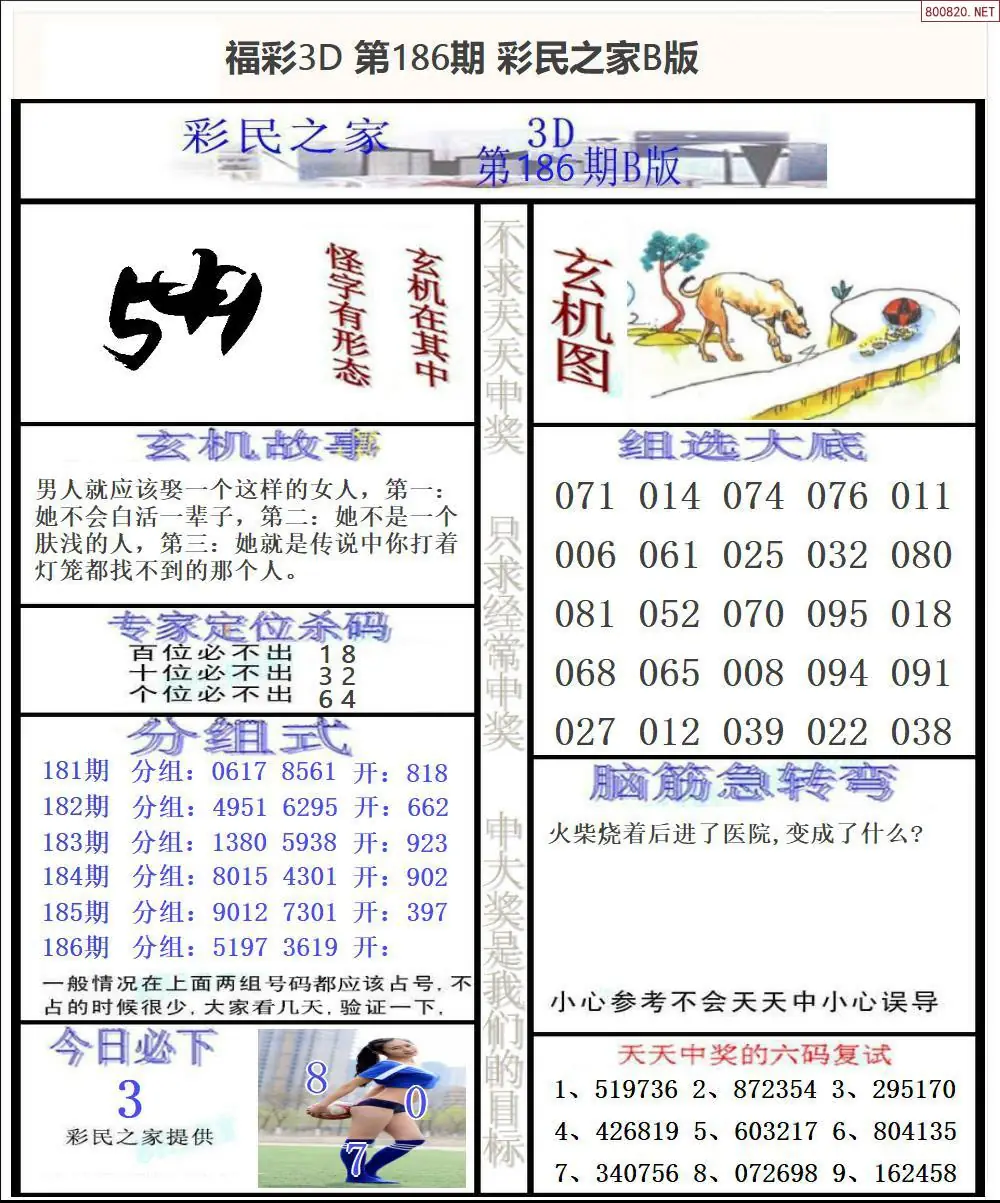 800820.NET
福彩3D 第186期 彩民之家B版
彩民之家
3D
第186期B版
怪字有形态
玄机在其中
玄机故事
男人就应该娶一个这样的女人，第一：
她不会白活一辈子，第二：她不是一个
肤浅的人，第三：她就是传说中你打着
灯笼都找不到的那个人。
专家定位杀码
百位必不出 18
十位必不出 32
个位必不出 64
分组式
181期 分组：0617 8561 开：818
182期 分组：4951 6295 开：662
183期 分组：1380 5938 开：923
184期 分组：8015 4301 开：902
185期 分组：9012 7301 开：397
186期 分组：5197 3619 开：
一般情况在上面两组号码都应该占号,不
占的时候很少,大家看几天,验证一下,
今日必下
3
彩民之家提供
8
0
7
不求天天中奖
只求经常中奖
中大奖是我们的目标
玄机图
组选大底
071 014 074 076 011
006 061 025 032 080
081 052 070 095 018
068 065 008 094 091
027 012 039 022 038
脑筋急转弯
火柴烧着后进了医院,变成了什么?
小心参考不会天天中小心误导
天天中奖的六码复试
1、519736 2、872354 3、295170
4、426819 5、603217 6、804135
7、340756 8、072698 9、162458